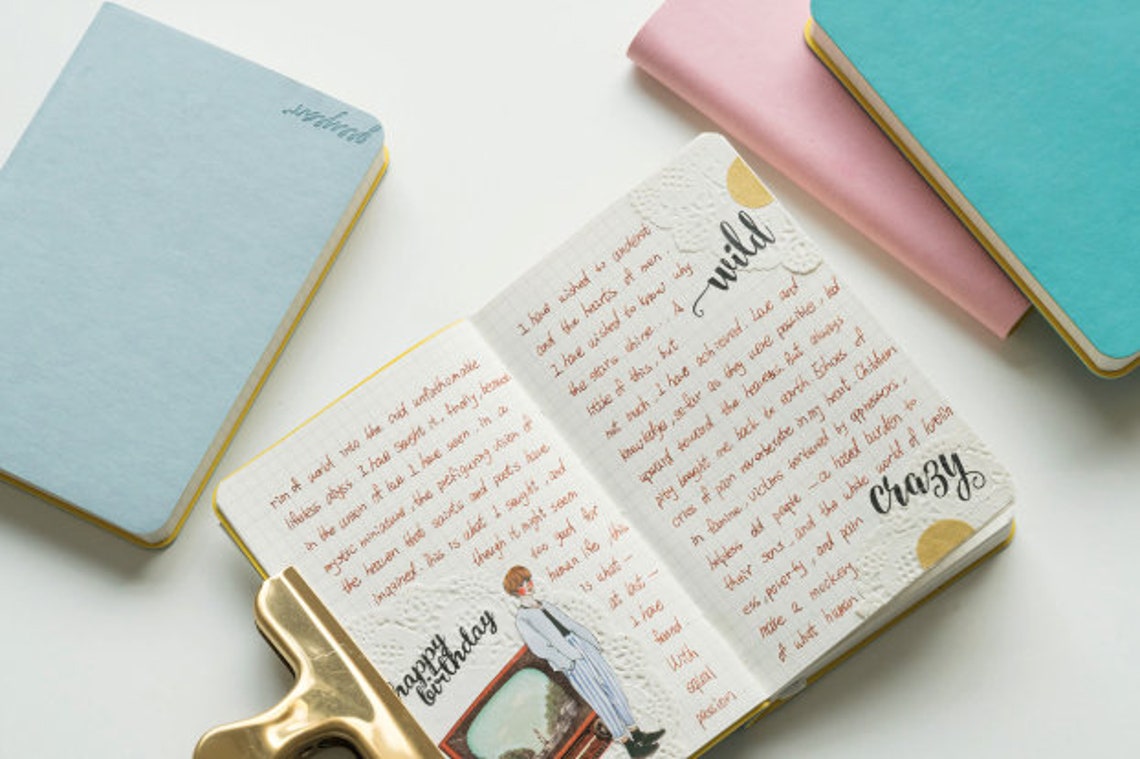 goodpoint
rim of world into the cold unfathomable
lifeless abyss. I have sought it, finally, because
in the union of love I have seen, in a
mystic miniature, the prefiguring vision of
the heaven that saints and poets have
imagined. This is what I sought, and
though it might seem
too good for
human life, this
is what—
at last—
I have
found.
With
equal
passion
happy
birthday
I have wished to underst
and the hearts of men
I have wished to know why
the stars shine... A
little of this, but
not much, I have achieved. Love and
knowledge, so far as they were possible, led
upward toward the heavens. But always
pity brought me back to earth. Echoes of
cries of pain reverberate in my heart. Children
in famine, victims tortured by oppressors,
helpless old people — a hated burden to
their sons, and the whole world of lonelin
ess, poverty, and pain
make a mockery
of what human
wild
crazy